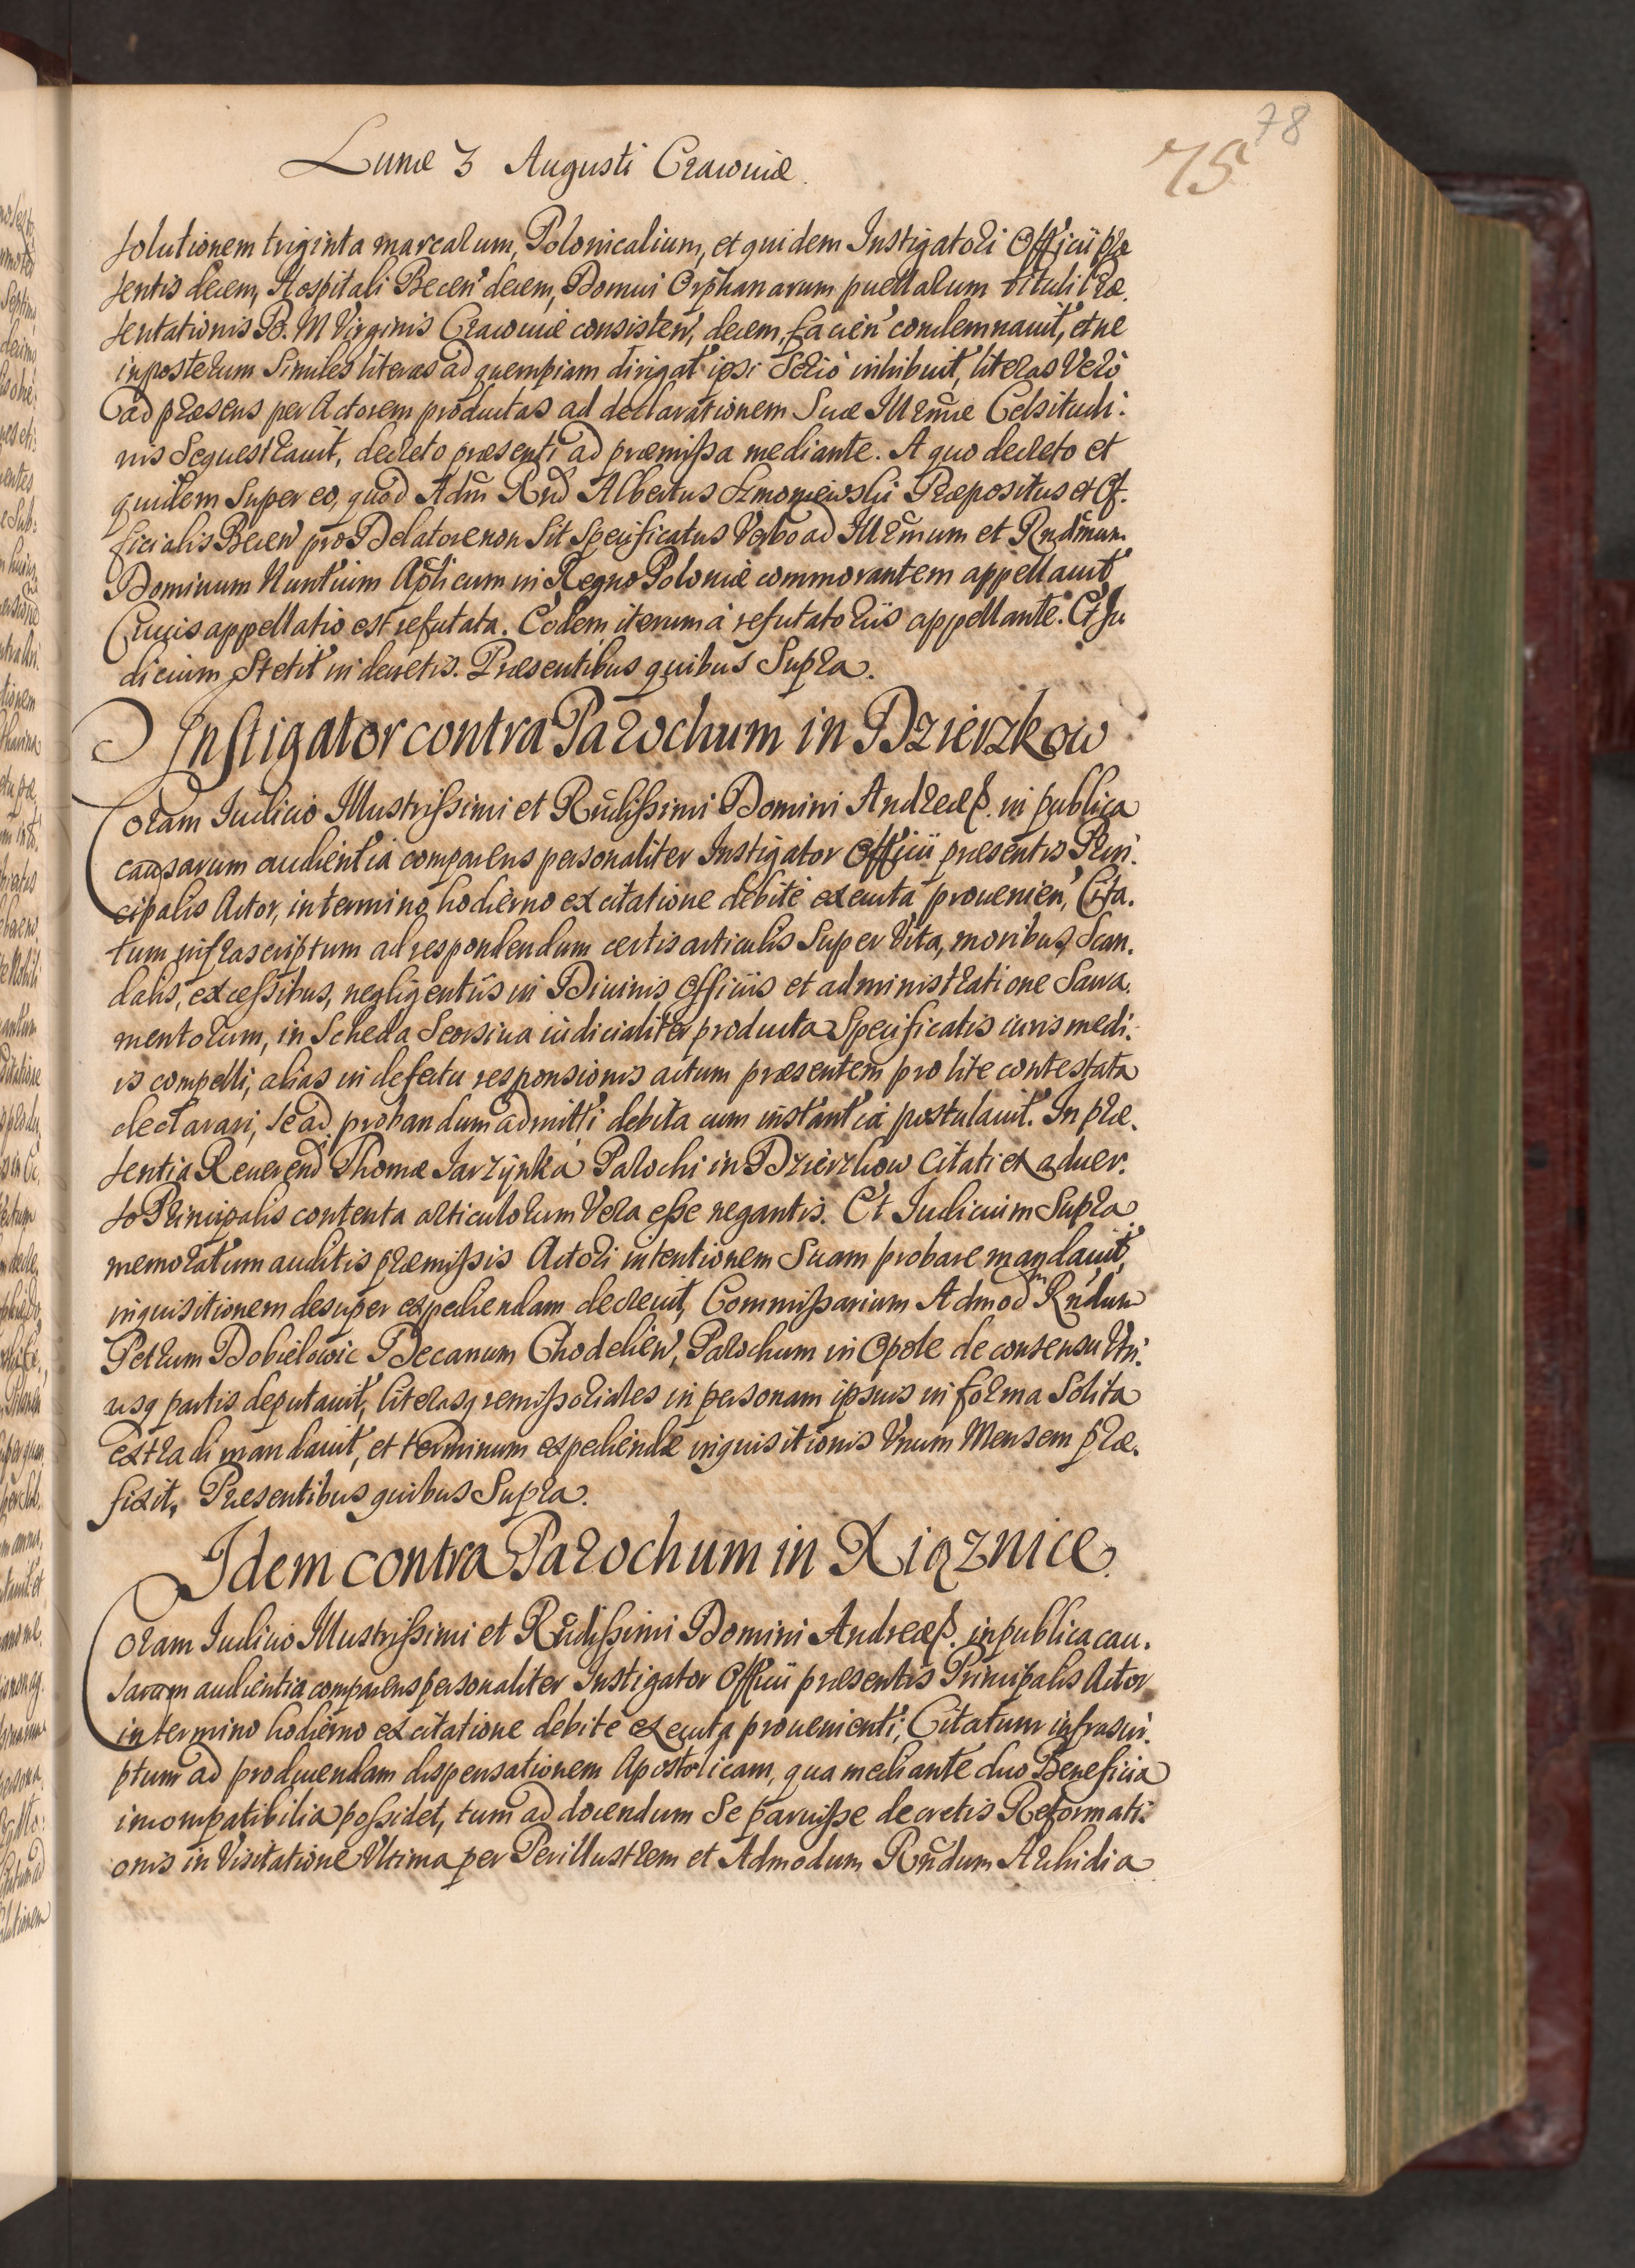 78
75
Lunæ 3 Augusti Cracoviæ.
solutionem triginta marcarum, Polonicalium, et quidem Instigatori Officii præ
sentis decem, Hospitali Becen' decem, Domui Orphanarum puellarum tituli Præ.
sentationis B. M Virginis Cracoviæ consisten', decem, facien' condemnauit, et ne
inposterum Similes literas ad quempiam dirigat ipsi Serio inhibuit, literas Vero
ad præsens per Actorem productas ad declarationem Suæ Illrmæ Celsitudi:
nis Sequestrauit, decreto præsenti ad præmissa mediante. A quo decreto et
quidem Super eo, quod Adm Rnd Albertus Szmoniewski Præpositus et Of.
ficialis Becen' pro Delatore non Sit Specificatus Verbo ad Illrmum et Rndmum
Dominum Nuntium Aplicum in Regno Poloniæ commorantem appellauit
Cuius appellatio est refutata. Eodem iterum à refutatoriis appellante. Et Iu
dicium Stetit in decretis. Præsentibus quibus Supra.
Instigator contra Parochum in Dzierzkow
Coram Iudicio Illustrissimi et Rndissimi Domini Andreæ P. in publica
causarum audientia comparens personaliter Instigator Officii præsentis Prin:
cipalis Actor, in termino hodierno ex citatione debite executa prouenien', Cita.
tum infrascriptum ad respondendum certis articulis Super Vita, moribus, Scan.
dalis, excessibus, negligentiis in Diuinis Officiis et administratione Sacra.
mentorum, in Scheda Seorsiua iudicialiter producta Specificatis iuris medi:
is compelli, alias in defectu responsionis actum præsentem pro lite contestata
declarari, se ad probandum admitti debita cum instantia postulauit. In præ.
sentia Reuerend Thomæ Jarzynka Parochi in Dzierzkow Citati ex aduer.
so Principalis contenta articulorum Vera esse negantis. Et Iudicium Supra
memoratum auditis præmissis Actori intentionem Suam probare mandauit,
inquisitionem desuper expediendam decreuit, Commissarium Admod Rndum
Petrum Dobielowic Decanum Chodelien', Parochum in Opole de consensu Vtri:
usq partis deputauit, literasq remissoriales in personam ipsius in forma Solita
extradi mandauit, et terminum expediendæ inquisitionis Vnum Mensem præ.
fixit, Præsentibus quibus Supra.
Idem contra Parochum in Xiąznice.
Coram Iudicio Illustrissimi et Rndissimi Domini Andreæ P. in publica cau.
sarum audientia comparens personaliter Instigator Officii præsentis Principalis Actor
in termino hodierno ex citatione debite executa prouenienti; Citatum infrascri.
ptum ad producendam dispensationem Apostolicam, qua mediante duo Beneficia
incompatibilia possidet, tum ad docendum Se paruisse decretis Reformati:
onis in Visitatione Vltima per Perillustrem et Admodum Rndum Archidia